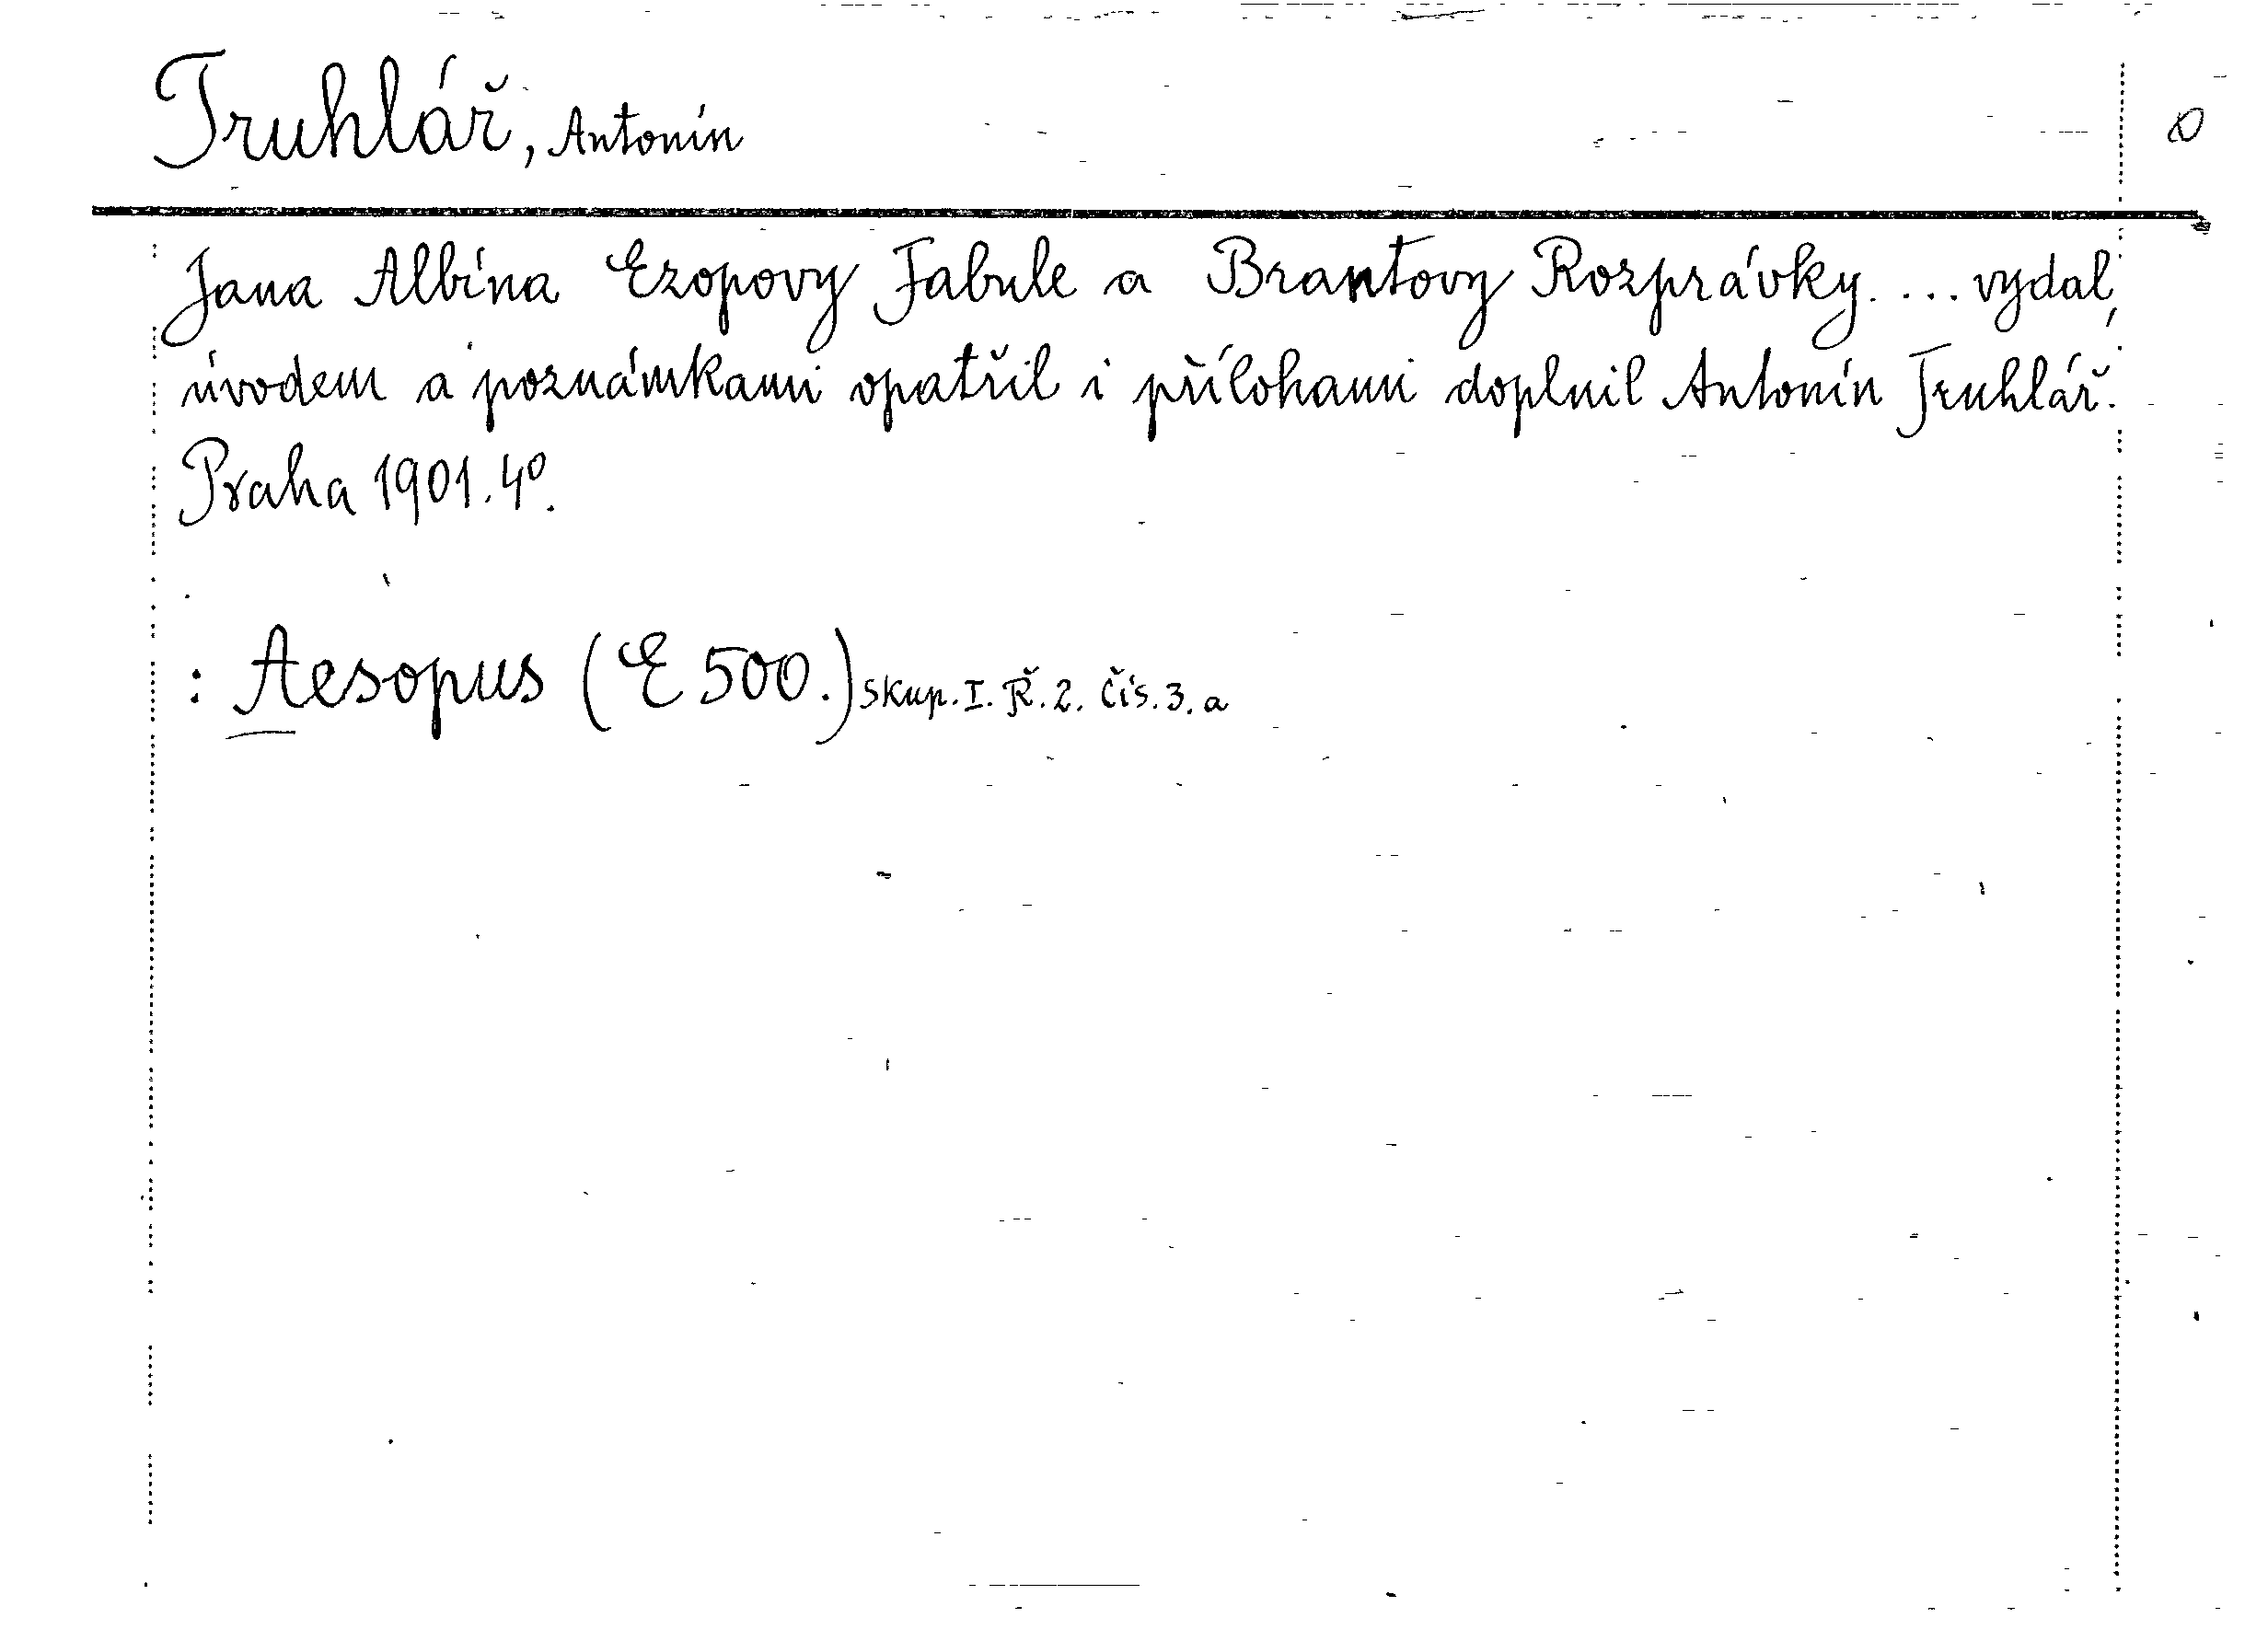 Truhlář, Antonín
Jana Albína Ezopovy Fabule a Brantovy Rozprávky. ... vydal,
úvodem a poznámkami opatřil i přílohami doplnil Antonín Truhlář.
Praha 1901. 4°.
: Aesopus (E 500.) skup. I. Ř. 2. Čís. 3. a